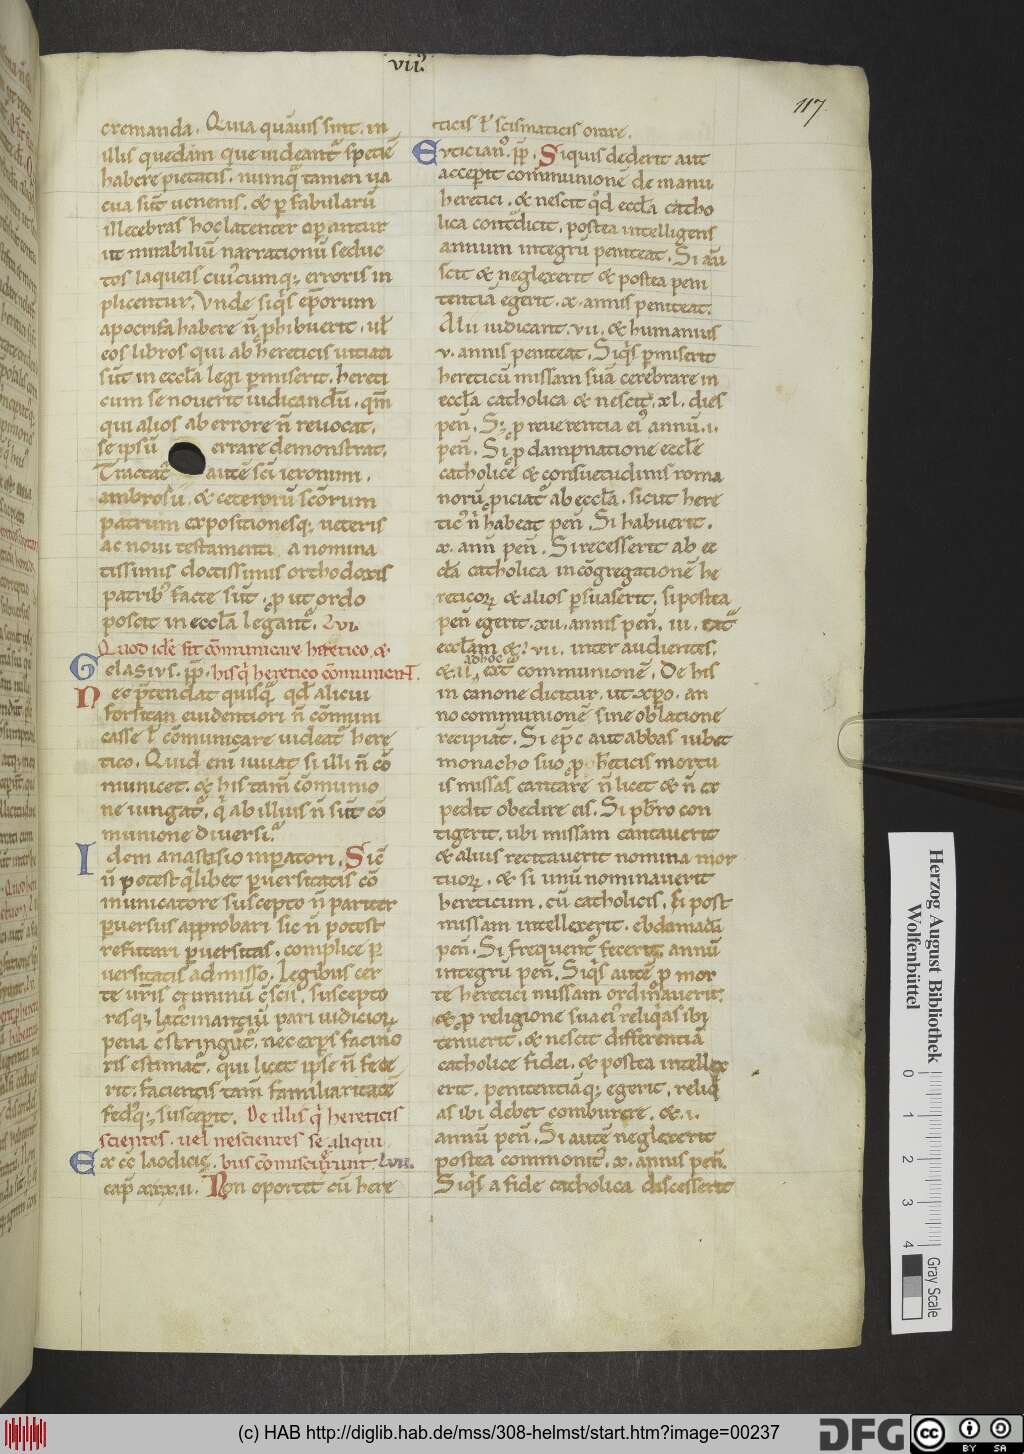 vii.
117.
cremanda. Quia quamuis sint in
illis quedam que uideant᷑ speciē
habere pietatis. numq̄ tamen ua
cua sūt uenenis. & p̱ fabularū
illecebras hoc latenter op̱antur
ut mirabiliū narrationū seduc
tos laqueis cuiꝰcumq; erroris in
plicentur. Vnde siq̇s ep̄orum
apocrifa habere n̄ ꝓhibuerit. ul̄
eos libros qui ab hereticis uitiati
sūt in eccl̄a legi p̱miserit. hereti
cum se nouerit iudicandū. qm̄
qui alios ab errore n̄ reuocat.
se ipsū errare demonstrat.
Tractatꝰ autē sc̄i ieronimi.
ambrosii. & ceterorū sc̄orum
patrum expositionesq; ueteris
ac noui testamenti a nomina
tissimis doctissimis orthodoxis
patribꝰ facte sūt. ꝓut ordo
poscit in eccl̄a legant᷑. lvi.
Quod idē sit cōmunicare heretico. &
Gelasius. pp̄. his q̇ heretico cōmunicant.
Nec p̄tendat quisq̄ qd̄ alicui
forsitan euidentiori n̄ cōmuni
casse l̄ cōmunicare uideat᷑ here
tico. Quid enī iuuat si illi n̄ cō
municet. & his tam̄ cōmunio
ne iungat᷑. q̇ ab illius n̄ sūt cō
munione diuersi.
Idem anastasio inp̱atori. Sic̄
n̄ potest q̇libet p̱uersitatis cō
municatore suscepto n̄ pariter
p̱uersus approbari sic n̄ potest
refutari p̱uersitas. complice p̱
uersitatis admisso. Legibus cer
te ur̄is criminū c̄scii. suscepto
resq; latrocinantiū pari iudicioꝝ
pena c̄stringūt᷑. nec exp̱s facino
ris estimat᷑. qui licet ipse n̄ fece
rit. facientis tam̄ familiaritatē
fedꝰq; suscepit. De illis q̇ hereticis
scientes. uel nescientes se aliqui
Ex cc̄ laodicię. bus cōmiscuerunt. lvii.
cap̄ xxx.ii. Non oportet cū here
ticis l̄ scismaticis orare.
Euticianꝰ. pp̄. Siquis dederit aut
acceperit communionē de manu
heretici. & nescit qd̄ eccl̄a catho
lica contradicit. postea intelligens
annum integrū peniteat. Si aū
scit & neglexerit & postea peni
tentiā egerit. x. annis peniteat.
Alii iudicant. vii. & humanius
v. annis peniteat. Siq̇s p̱miserit
hereticū missam suā cerebrare in
eccl̄a catholica & nescit. xl. dies
pen̄. Si ꝓ reuerentia eiꝰ annū. i.
pen̄. Si ꝓ dampnatione eccl̄ę
catholicę & consuetudinis roma
norū ꝓiciat᷑ ab eccl̄a. sicut here
ticꝰ n̄ habeat pen̄. Si habuerit.
x. ann̄ pen̄. Si recesserit ab ec
cl̄a catholica in cōgregationē he
reticoꝝ & alios p̱suaserit. si postea
pen̄ egerit. xii. annis pen̄. iii. ext᷑
eccl̄am &. vii. inter audientes.
adhoc
&. ii. ext᷑ communionē. De his
in canone dicitur. ut xpo. an
no communionē sine oblatione
recipiat. Si ep̄c aut abbas iubet
monacho suo ꝓ hereticis mortu
is missas cantare n̄ licet & n̄ ex
pedit obedire eis. Si pb̄ro con
tigerit. ubi missam cantauerit
& alius recitauerit nomina mor
tuoꝝ. & si unū nominauerit
hereticum. cū catholicis. si post
missam intellexerit. ebdomadā
pen̄. Si frequent᷑ fecerit. annū
integrū pen̄. Siq̇s autē ꝓ mor
te heretici missam ordinauerit.
& ꝓ religione sua eiꝰ reliqas ibi
tenuerit. & nescit differentiā
catholicę fidei. & postea intellex
erit. penitentiāq; egerit. reliq̇
as ibi debet comburere. &. i.
annū pen̄. Si autē neglexerit
postea commonitꝰ. x. annis pen̄.
Siq̇s a fide catholica discesserit
Herzog August Bibliothek
Wolfenbüttel
0 1 2 3 4
Gray Scale
(c) HAB http://diglib.hab.de/mss/308-helmst/start.htm?image=00237
DFG
cc BY SA